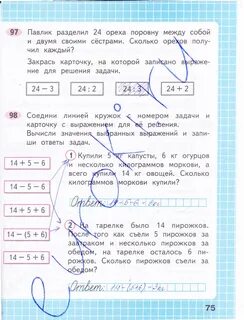 97 Павлик разделил 24 ореха поровну между собой
и двумя своими сёстрами. Сколько орехов полу-
чил каждый?
Закрась карточку, на которой записано выраже-
ние для решения задачи.
24 − 3 24 : 2 24 : 3 24 + 2
98 Соедини линией кружок с номером задачи и
карточку с выражением для её решения.
Вычисли значения выбранных выражений и запи-
ши ответы задач.
14 + 5 − 6
14 − 5 − 6
14 + 5 + 6
14 − (5 + 6)
14 − 5 + 6
1 Купили 5 кг капусты, 6 кг огурцов
и несколько килограммов моркови, а
всего купили 14 кг овощей. Сколько
килограммов моркови купили?
Ответ:
2 На тарелке было 14 пирожков.
После того как съели 5 пирожков за
завтраком и несколько пирожков за
обедом, на тарелке осталось 6 пи-
рожков. Сколько пирожков съели за
обедом?
Ответ:
75